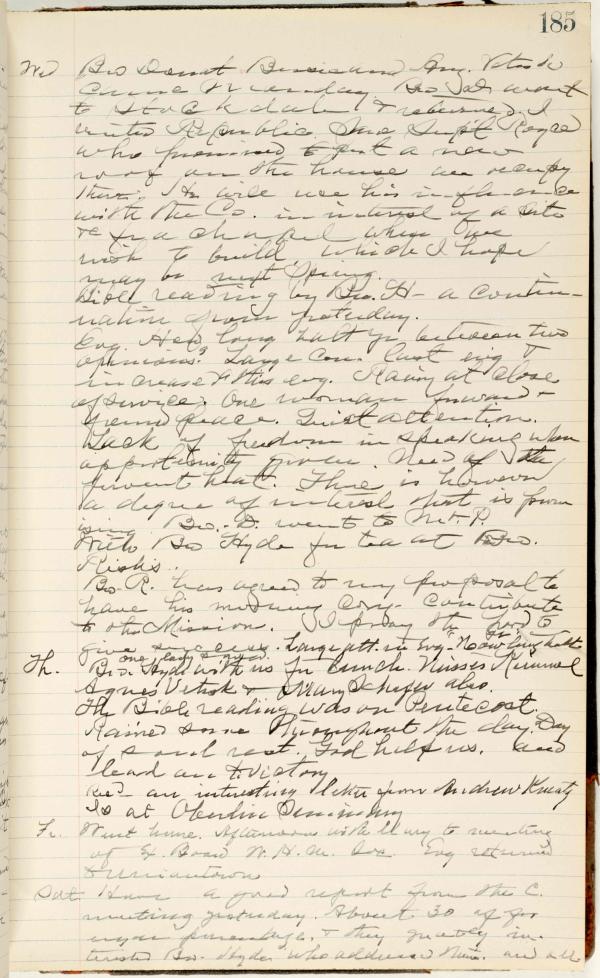 185
Wed Bro Donat Bessie and Aug. Vitsek
came Wednesday. Bro
to Stockdale & returned. I
visited Republic. Saw Supt
who promised to put a new
roof on the house we occupy
there. He will use his influence
with the Co. in interest of a site
for a chapel when we
wish to build, which I hope
may be next Spring.
Bible reading by Bro. H- a contin-
uation from yesterday.
Evg. How long halt ye between two
opinions? Large Con. last evg &
increased this evg. Rainy at close
of service. One woman forward &
found peace. attention.
Lack of freedom in speaking when
opportunity given. Need of the
fervent heat. There is however
a degree of interest that is prom
ising. Bro. D. went to Mt. P.
With Bro Hyde for tea at Bro.
Bro. R. has agreed to my proposal to
have his morning Cong. contribute
to the Mission. I pray the Lord to
give success. Large att. in Evg. "How long halt
one lady
Th. Bro. Hyde with us for lunch. Misses
Agnes Vitsek & Mary also.
The Bible reading was on Pentecost.
Rained some throughout the day. Day
of soul rest. God help us. and
lead on to victory
Recd an interesting letter from Andrew
Is at Oberlin Seminary
Fr. Went home. Afternoon with Mary to meeting
of Ex. Board W. H. M. Soc. Evg returned
to Uniontown
Sat. Have a good report from the C.
meeting yesterday. About 30 of
& they greatly in-
terested Bro. Hyde who addressed them. and all